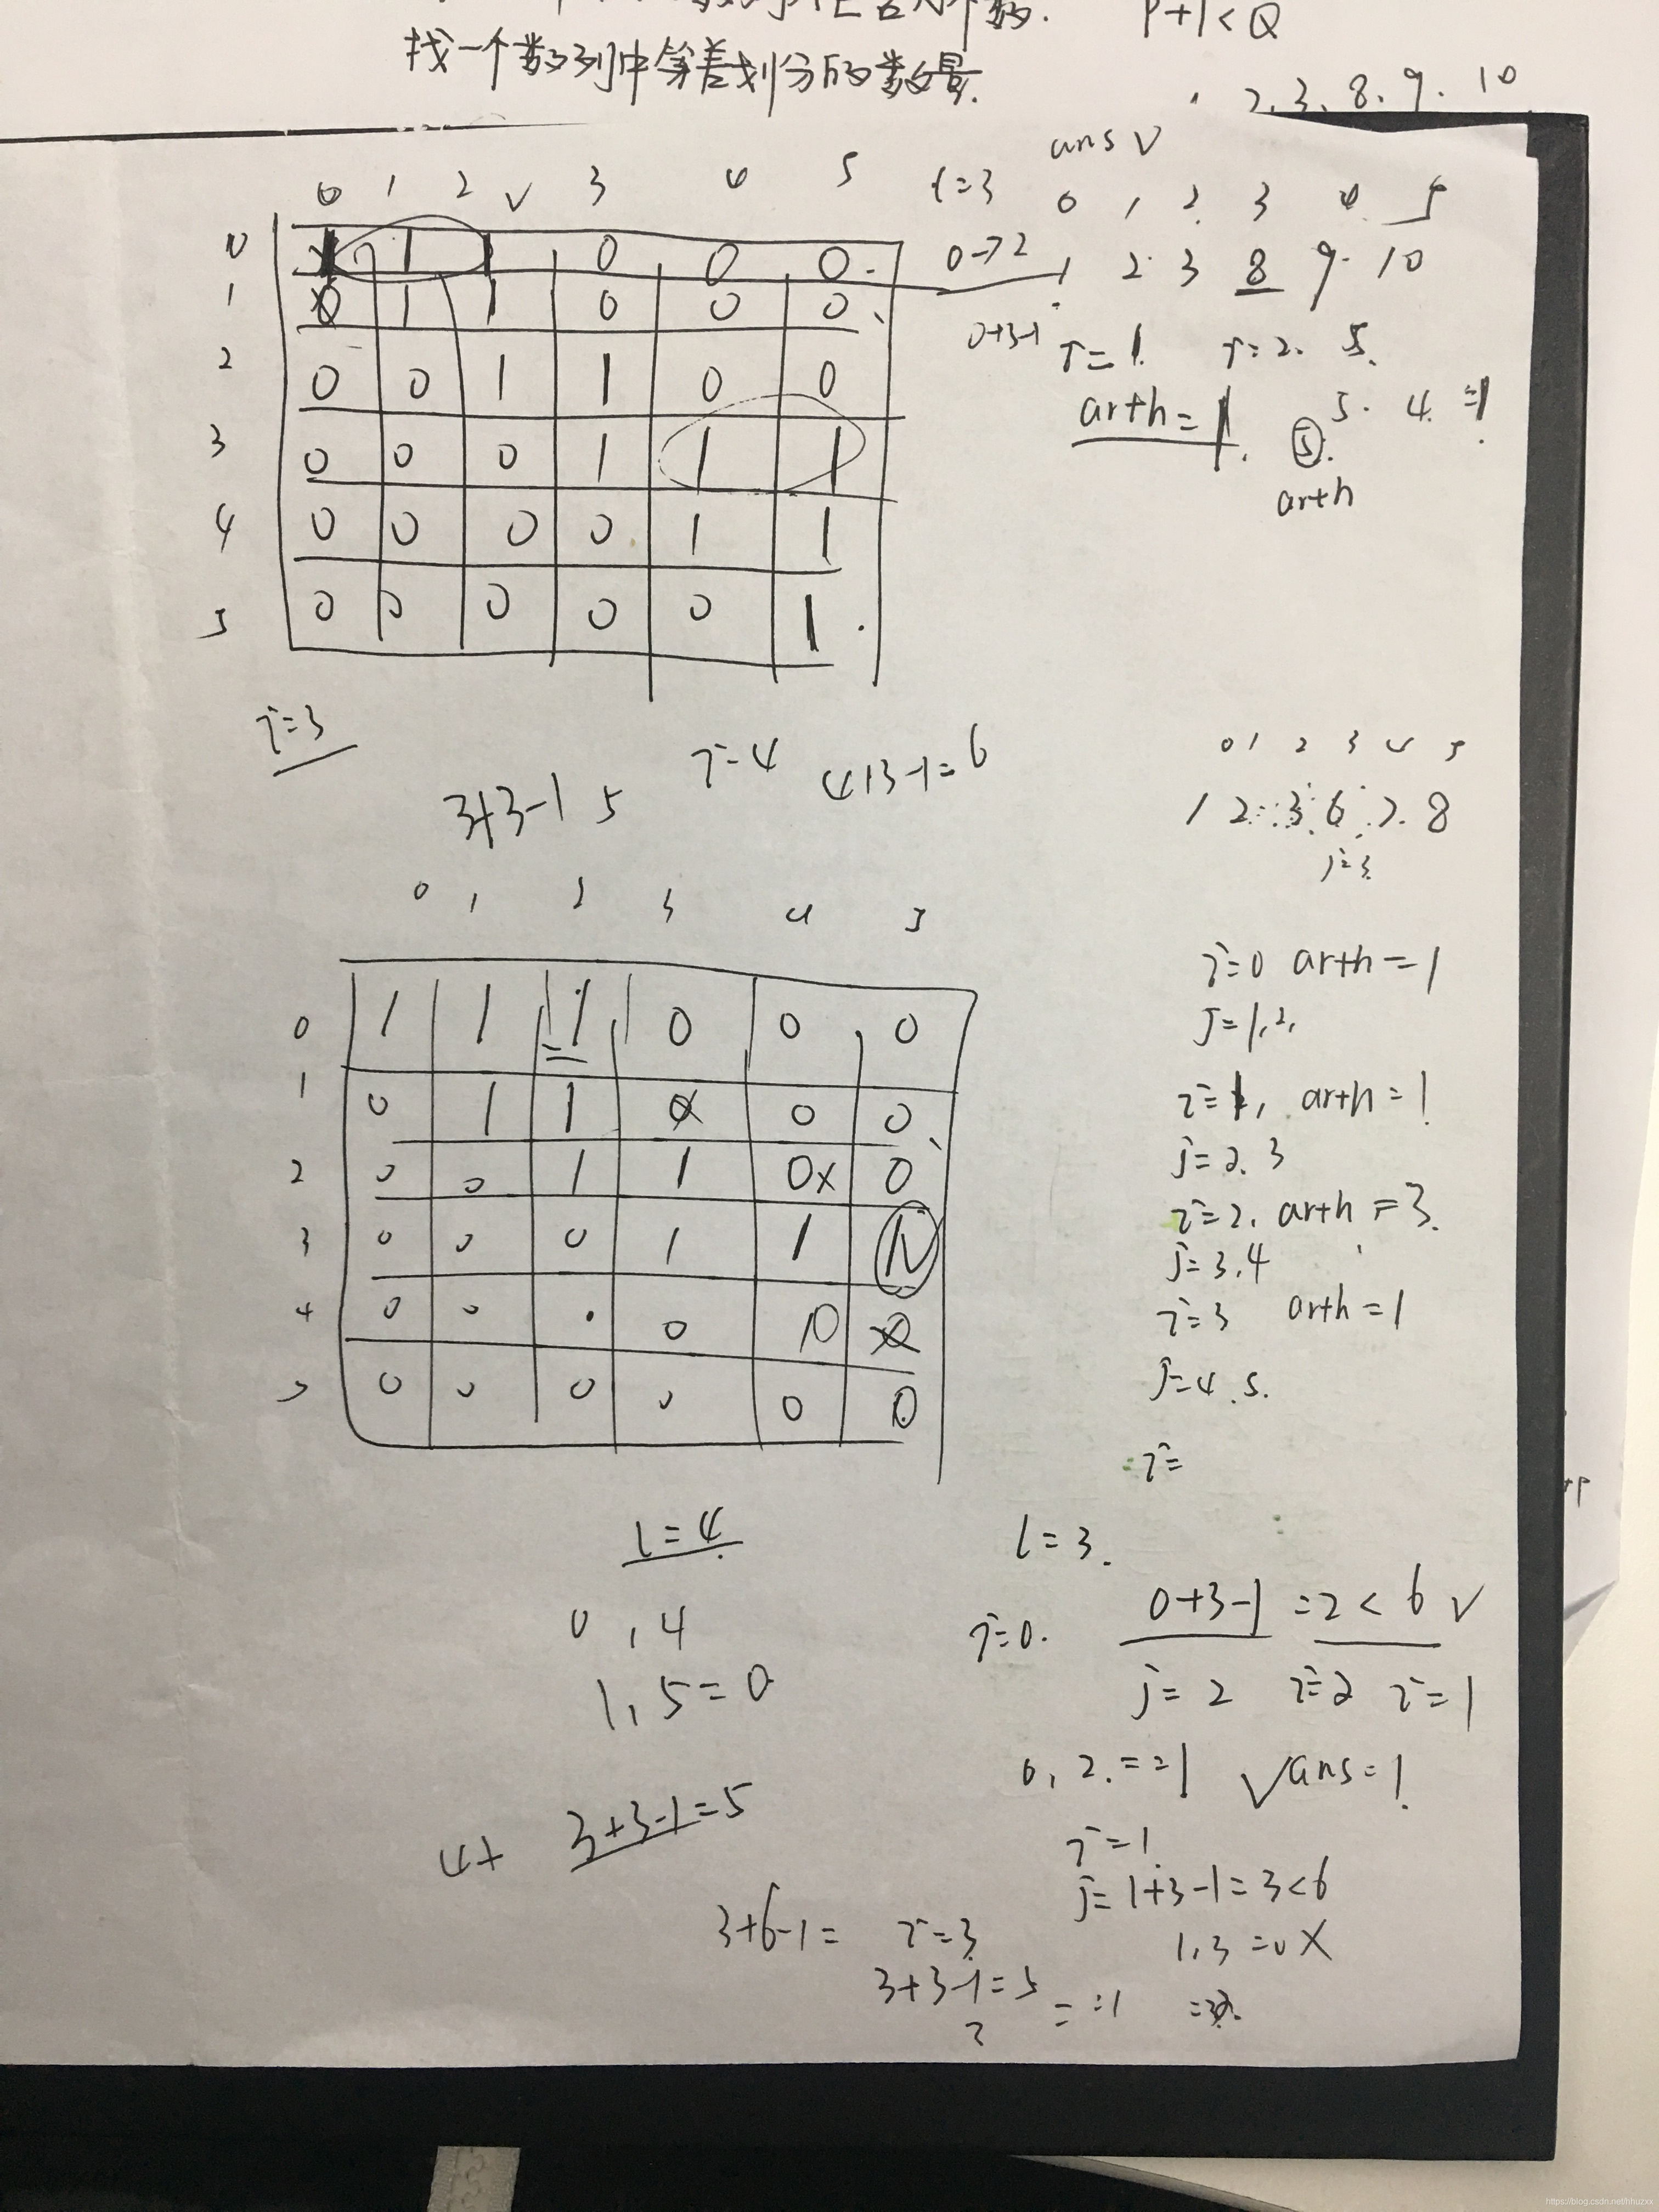 P+1<Q
找一个数列中等差划分的数量.
2. 3. 8. 9. 10
ans V
0 1 2 V 3 4 5
l=3 0 1 2 3 4 5
0 1 1 0 0 0
0→2 1 2 3 8 9 10
1 0 1 1 0 0 0
0+3-1 i=1 i=2. 5.
2 0 0 1 1 0 0
arth=1. 5. 4. =1
3 0 0 0 1 1 1
arth
4 0 0 0 0 1 1
5 0 0 0 0 0 1
i=3
3+3-1 5 i=4 4+3-1=6
0 1 2 3 4 5
1 2 3 6 7 8
j=3
0 1 2 3 4 5
i=0 arth=1
0 1 1 1 0 0 0
j=1,2,
1 0 1 1 0 0 0
i=1, arth=1
2 0 0 1 1 0x 0
j=2. 3
i=2. arth=3.
3 0 0 0 1 1 1
j=3.4
4 0 0 0
i=3 arth=1
5 0 0 0 0 0 0
j=4 5.
i=
l=4 l=3.
0, 4
i=0. 0+3-1=2<6 √
1, 5=0
j=2 i=2 i=1
0, 2.==1 √ans=1.
4+ 3+3-1=5
i=1
j=1+3-1=3<6
3+6-1= i=3
1,3=0X
3+3-1=5
==1
https://blog.csdn.net/hhuzxx